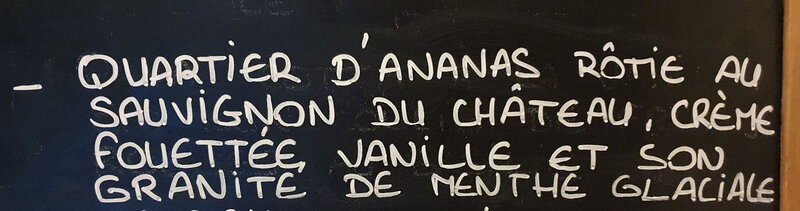 - QUARTIER D'ANANAS RÔTIE AU
SAUVIGNON DU CHÂTEAU, CRÈME
FOUETTÉE, VANILLE ET SON
GRANITÉ DE MENTHE GLACIALE